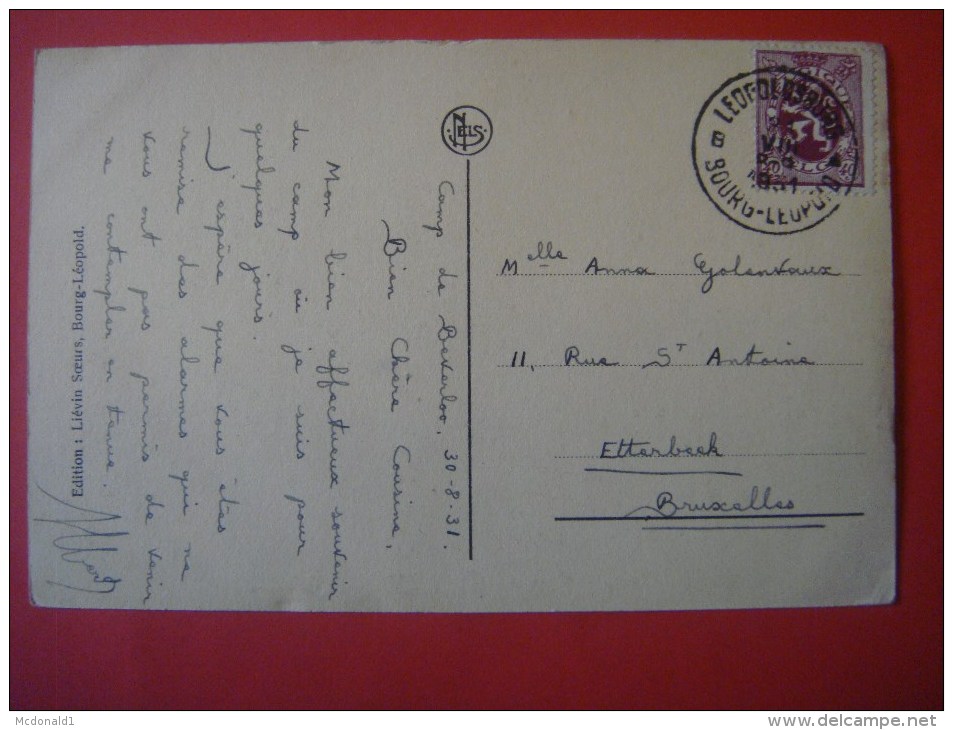 Camp de Beverloo, 30-8-31.
Bien Chère Cousine,
Mon bien affectueux souvenir
du camp où je suis pour
quelques jours.
J'espère que vous êtes
remise des alarmes qui ne
vous ont pas permis de venir
me contempler en tenue.
Albert
Edition : Liévin Sœurs, Bourg-Léopold.
NELS
LEOPOLDSBURG
VIII
1931
B BOURG-LEOPOLD
BELGIQUE
40 BELGIË 40
Melle Anna Golenvaux
11, Rue St Antoine
Etterbeek
Bruxelles
Mcdonald1
www.delcampe.net